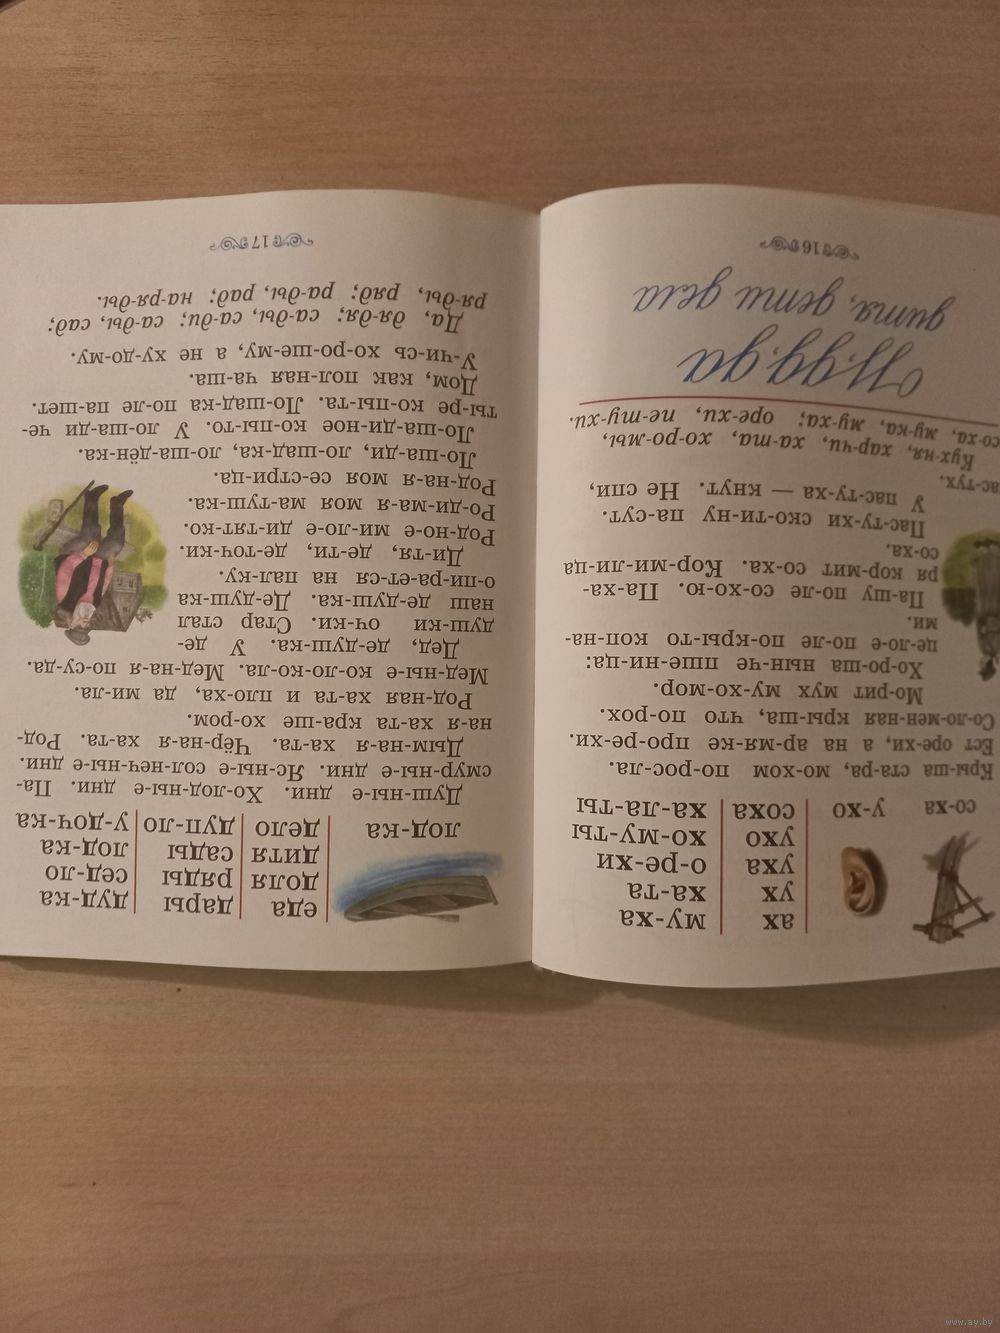 со-ха
у-хо
ах
му-ха
ух
ха-та
уха
о-ре-хи
ухо
хо-му-ты
соха
ха-ла-ты
Кры-ша ста-ра, мо-хом по-рос-ла.
Ест оре-хи, а на ар-мя-ке про-ре-хи.
Со-ло-мен-ная кры-ша, что по-рох.
Мо-рит мух му-хо-мор.
Хо-ро-ша нын-че пше-ни-ца:
це-ло-е по-ле по-кры-то коп-на-
ми.
Па-шу по-ле со-хо-ю. Па-ха-
ря кор-мит со-ха. Кор-ми-ли-ца
со-ха.
Пас-ту-хи ско-ти-ну па-сут.
У пас-ту-ха — кнут. Не спи,
ас-тух.
Кух-ня, хар-чи, ха-та, хо-ро-мы,
со-ха, му-ка, му-ха; оре-хи, пе-ту-хи.
Д,д,да
дитя, дети дела
16
лод-ка
еда
дары
дуд-ка
доля
ряды
сед-ло
дитя
сады
лод-ка
дело
дуп-ло
у-доч-ка
Душ-ны-е дни. Хо-лод-ны-е дни. Па-
смур-ны-е дни. Яс-ны-е сол-неч-ны-е дни.
Дым-на-я ха-та. Чёр-на-я ха-та. Род-
на-я ха-та кра-ше хо-ром.
Род-ная ха-та и пло-ха, да ми-ла.
Мед-ны-е ко-ло-ко-ла. Мед-на-я по-су-да.
Дед, де-душ-ка. У де-
душ-ки оч-ки. Стар стал
наш де-душ-ка. Де-душ-ка
о-пи-ра-ет-ся на пал-ку.
Ди-тя, де-ти, де-точ-ки.
Род-но-е ми-ло-е ди-тят-ко.
Ро-ди-ма-я моя ма-туш-ка.
Род-на-я моя се-стри-ца.
Ло-ша-ди, ло-шад-ка, ло-ша-дён-ка.
Ло-ша-ди-ное ко-пы-то. У ло-ша-ди че-
ты-ре ко-пы-та. Ло-шад-ка по-ле па-шет.
Дом, как пол-ная ча-ша.
У-чи-сь хо-ро-ше-му, а не ху-до-му.
Да, дя-дя; са-ды, са-ди; са-ды, сад;
ря-ды, ряд; ра-ды, рад; на-ря-ды.
17
www.ay.by